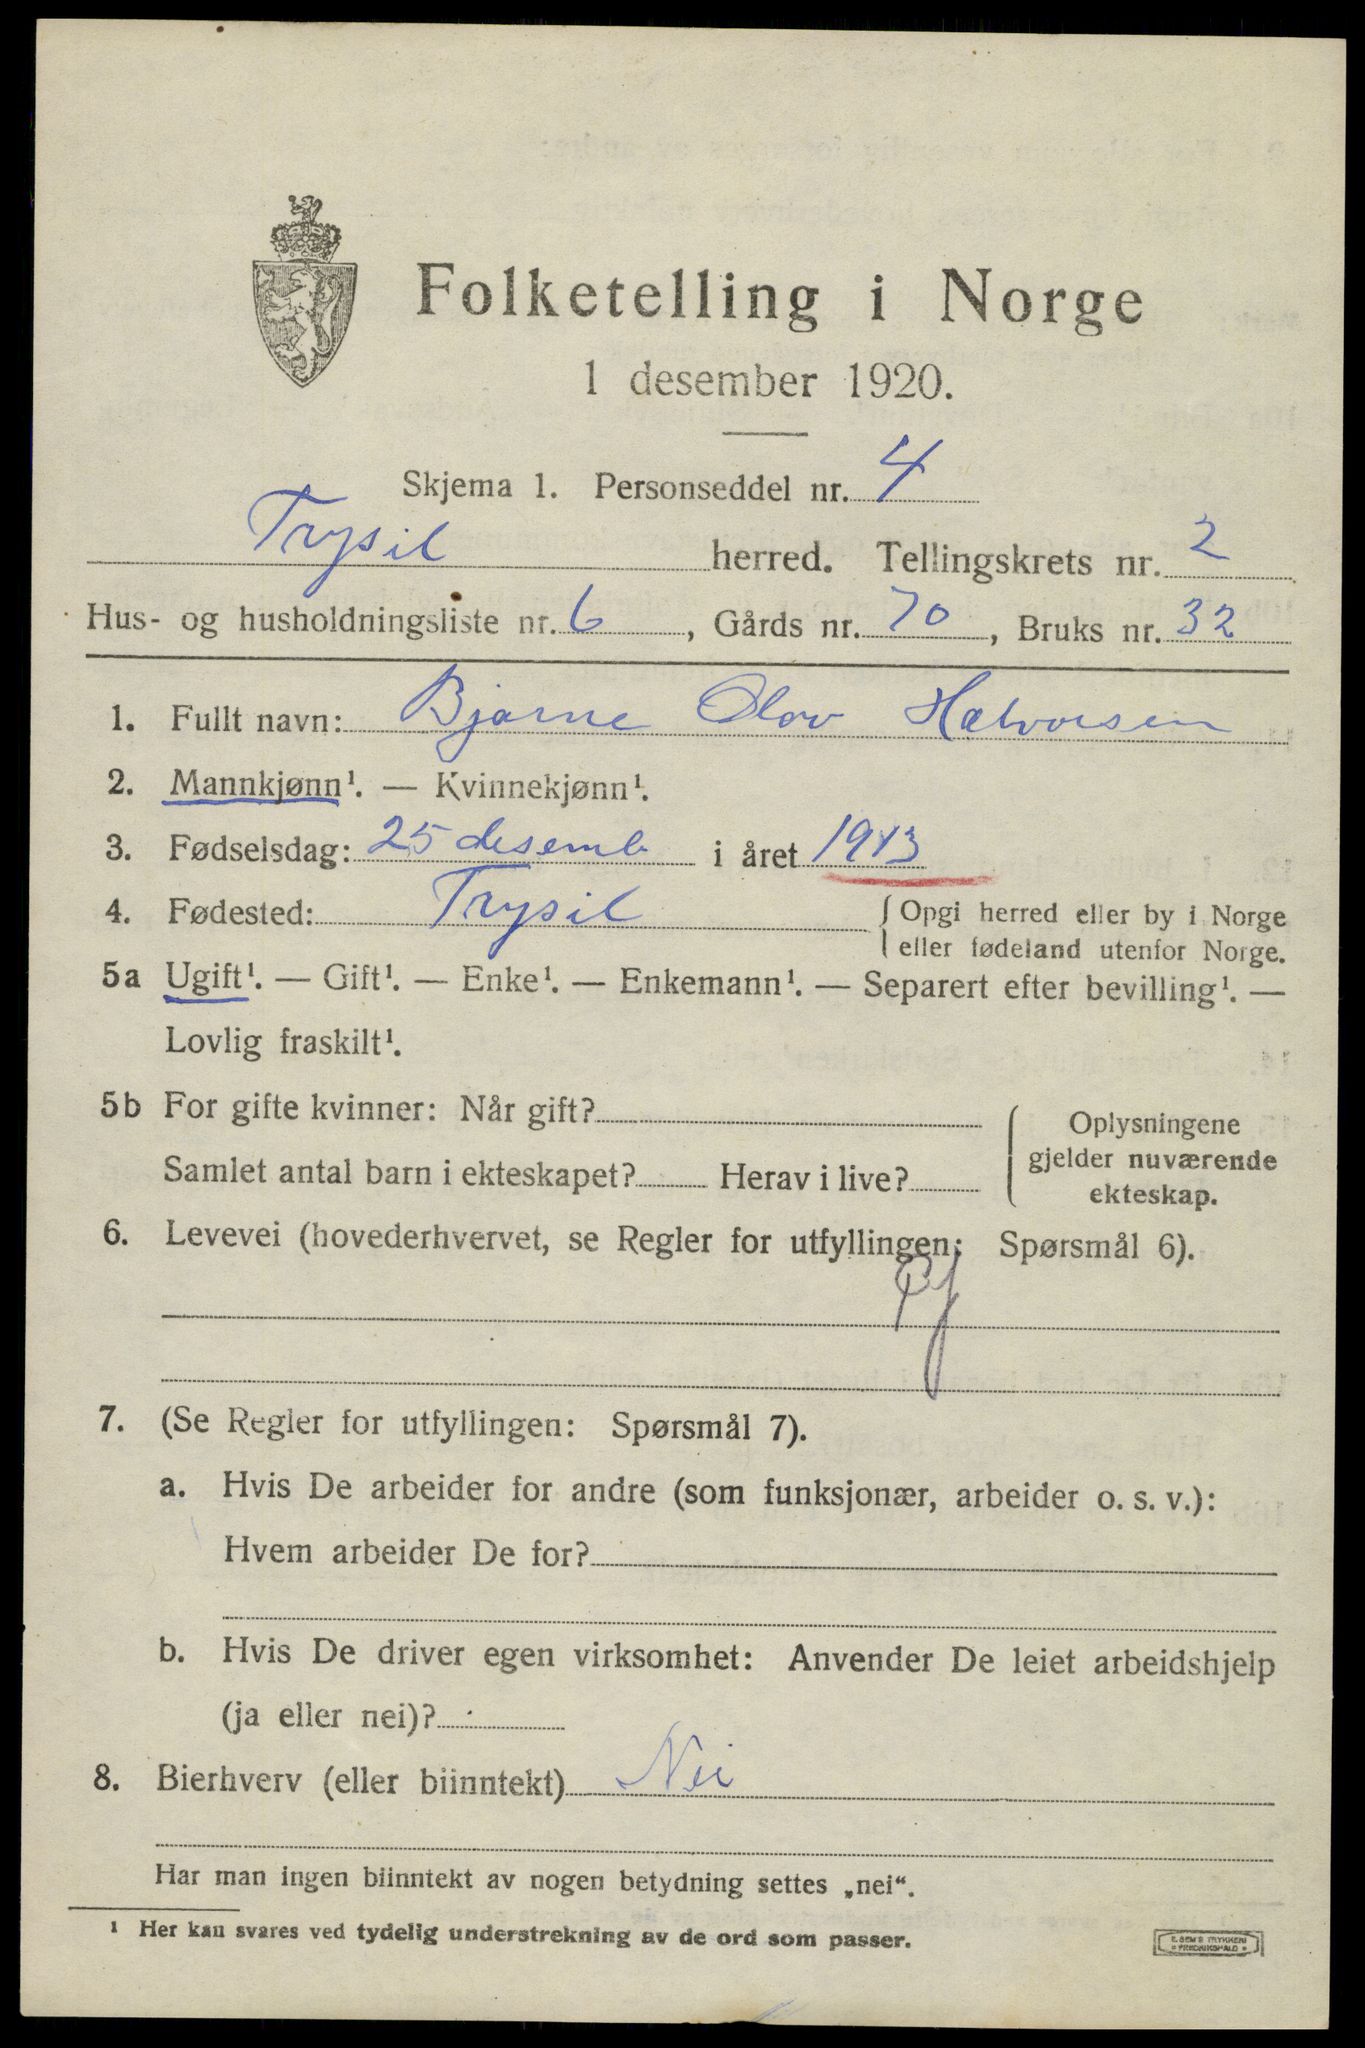 Folketelling i Norge
1 desember 1920.
Skjema 1. Personseddel nr. 4
Trysil herred. Tellingskrets nr. 2
Hus- og husholdningsliste nr. 6, Gårds nr. 70, Bruks nr. 32
1. Fullt navn: Bjarne Olov Halvorsen
2. Mannkjønn¹. — Kvinnekjønn¹.
3. Fødselsdag: 25 desemb i året 1913
4. Fødested: Trysil { Opgi herred eller by i Norge
eller fødeland utenfor Norge.
5a Ugift¹. — Gift¹. — Enke¹. — Enkemann¹. — Separert efter bevilling¹. —
Lovlig fraskilt¹.
5b For gifte kvinner: Når gift?
Samlet antal barn i ekteskapet? Herav i live?
{ Oplysningene
gjelder nuværende
ekteskap.
6. Levevei (hovederhvervet, se Regler for utfyllingen: Spørsmål 6).
7. (Se Regler for utfyllingen: Spørsmål 7).
a. Hvis De arbeider for andre (som funksjonær, arbeider o. s. v.):
Hvem arbeider De for?
b. Hvis De driver egen virksomhet: Anvender De leiet arbeidshjelp
(ja eller nei)?
8. Bierhverv (eller biinntekt) Nei
Har man ingen biinntekt av nogen betydning settes „nei“.
¹ Her kan svares ved tydelig understrekning av de ord som passer.
E. SEM'S TRYKKERI
FREDRIKSHALD